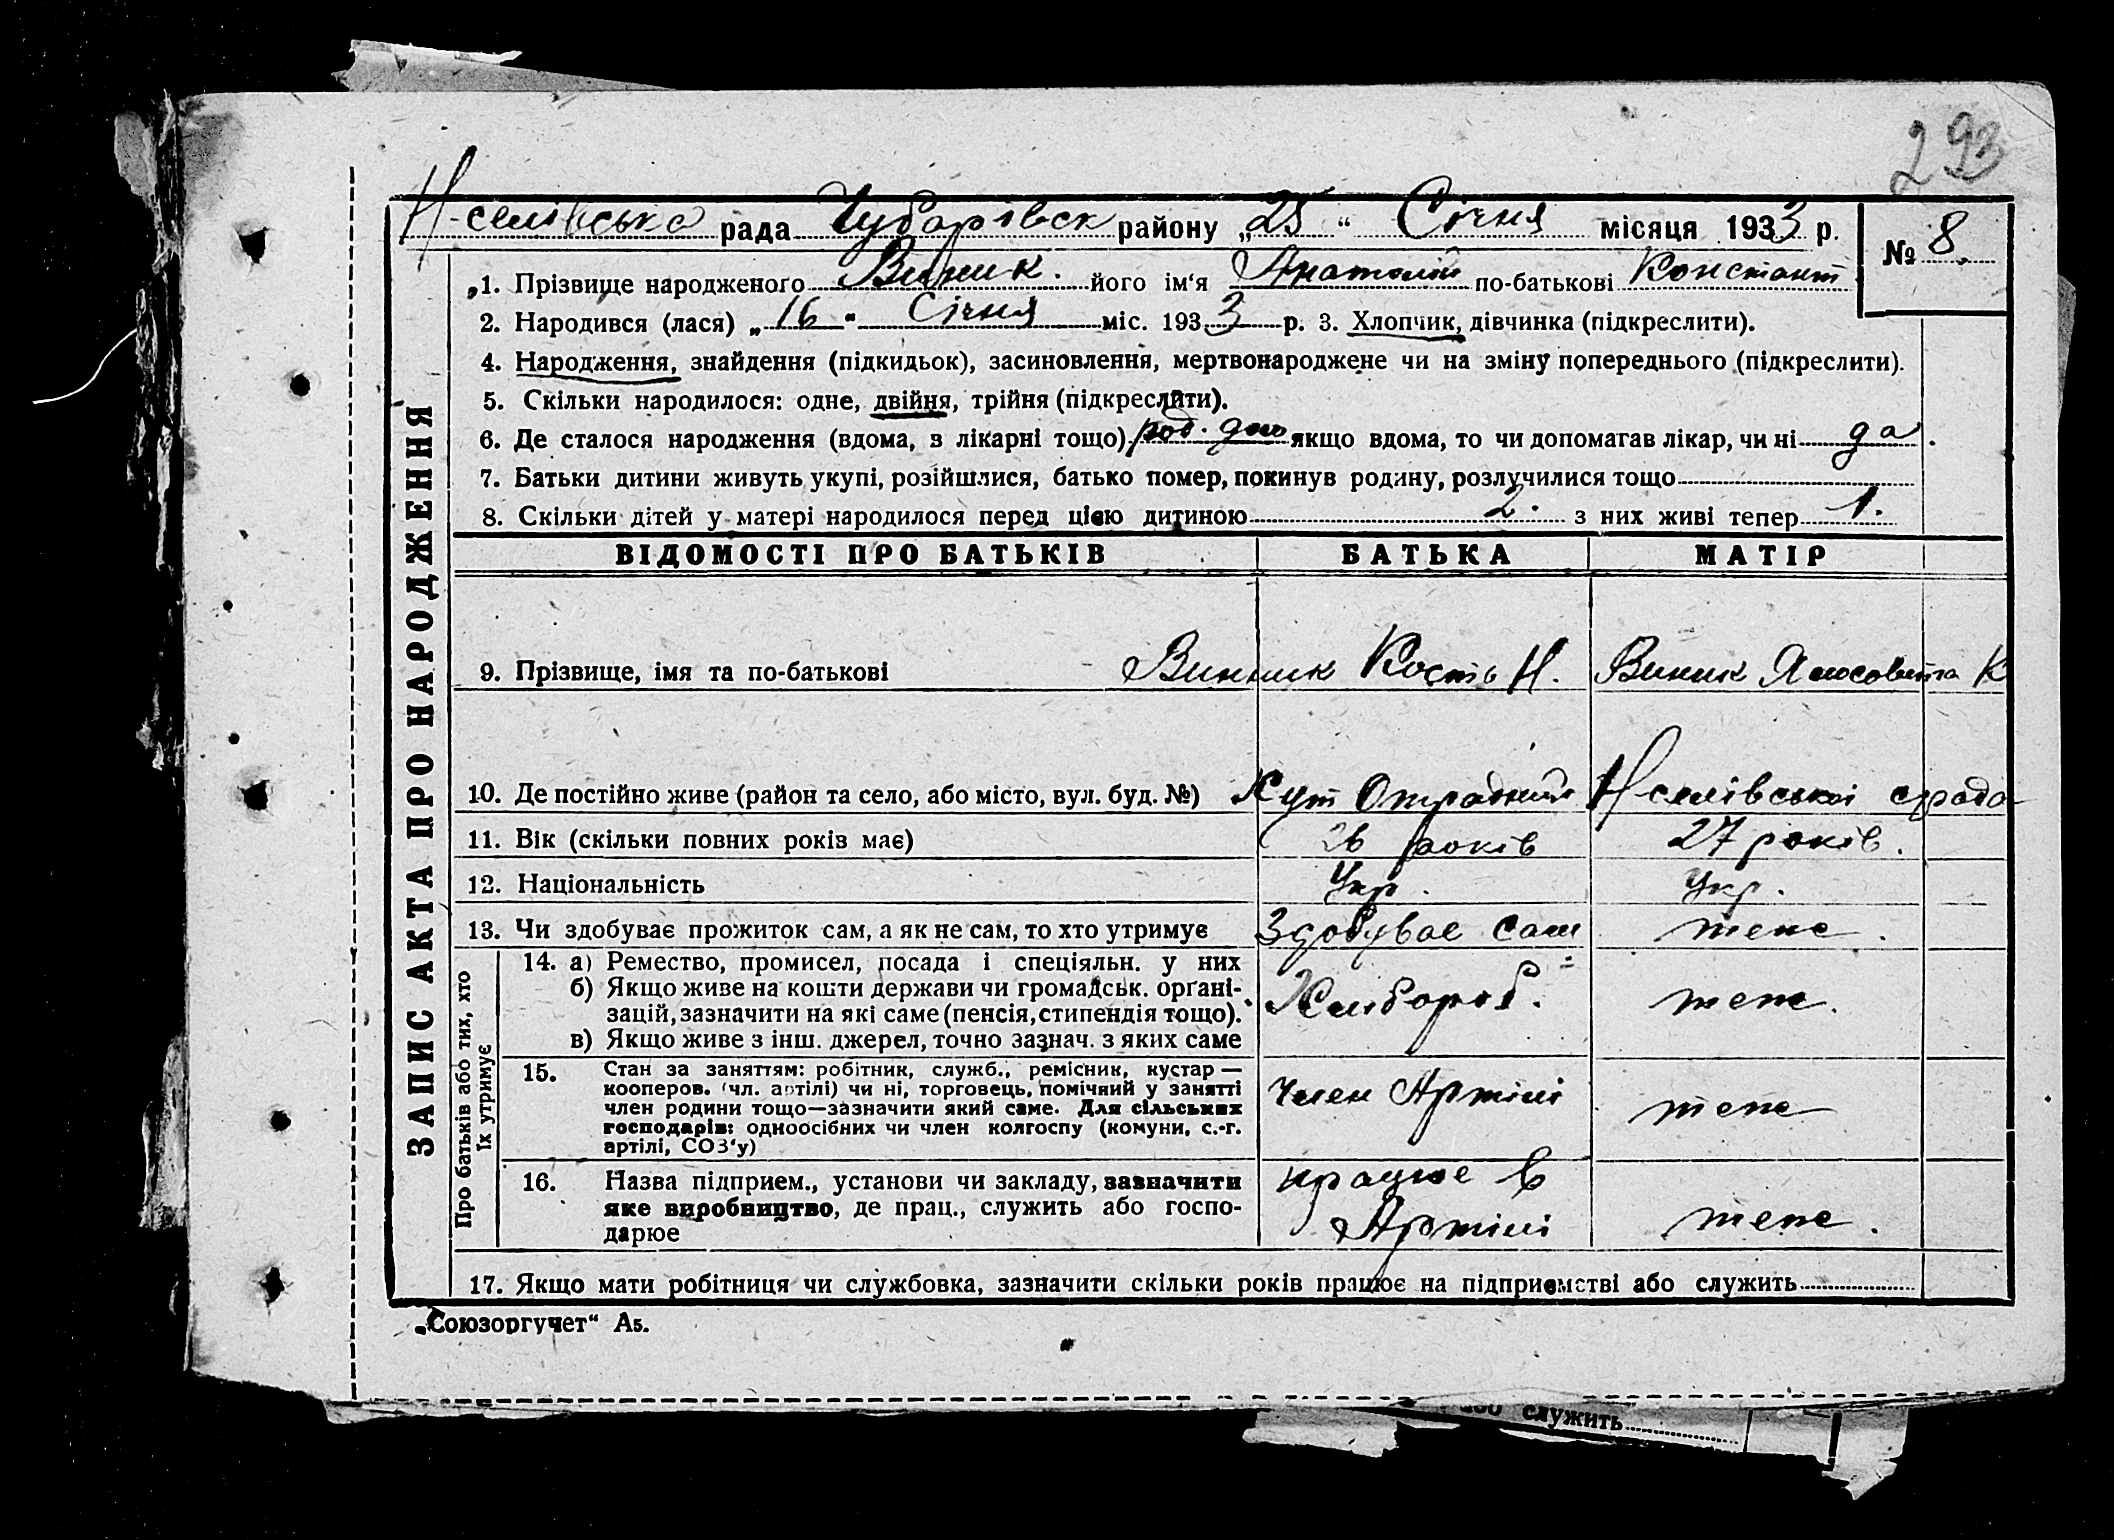 293
Н-селівська рада Чубарівск району „25“ Січня місяця 1933 р. № 8.
1. Прізвище народженого Виник. його ім‘я Анатолій по-батькові Константі
2. Народився (лася) „16“ Січня міс. 1933 р. 3. Хлопчик, дівчинка (підкреслити).
4. Народження, знайдення (підкидьок), засиновлення, мертвонароджене чи на зміну попереднього (підкреслити).
5. Скільки народилося: одне, двійня, трійня (підкреслити).
6. Де сталося народження (вдома, в лікарні тощо) род. дом якщо вдома, то чи допомагав лікар, чи ні да.
7. Батьки дитини живуть укупі, розійшлися, батько помер, покинув родину, розлучилися тощо
8. Скільки дітей у матері народилося перед цією дитиною 2. з них живі тепер 1.
ЗАПИС АКТА ПРО НАРОДЖЕННЯ
ВІДОМОСТІ ПРО БАТЬКІВ БАТЬКА МАТІР
9. Прізвище, імя та по-батькові Винник Кость Н. Виник К
10. Де постійно живе (район та село, або місто, вул. буд. №) Кут Отрадний Н-селівської срада
11. Вік (скільки повних років має) 26 років 27 років.
12. Національність Укр. Укр.
13. Чи здобуває прожиток сам, а як не сам, то хто утримує Здобуває сам теж.
Про батьків або тих, хто їх утримує
14. а) Ремество, промисел, посада і спеціяльн. у них
б) Якщо живе на кошти держави чи громадськ. орґані-
зацій, зазначити на які саме (пенсія, стипендія тощо). Хлібороб. теж.
в) Якщо живе з інш. джерел, точно зазнач. з яких саме
15. Стан за заняттям: робітник, служб., ремісник, кустар —
кооперов. (чл. артілі) чи ні, торговець, помічний у занятті
член родини тощо—зазначити який саме. Для сільських
господарів: одноосібних чи член колгоспу (комуни, с.-г.
артілі, СОЗ‘у) Член Артілі теж
16. Назва підприєм., установи чи закладу, зазначити
яке виробництво, де прац., служить або госпо-
дарює працює в Артілі теж.
17. Якщо мати робітниця чи службовка, зазначити скільки років працює на підприємстві або служить
„Союзоргучет“ А5.
або служить